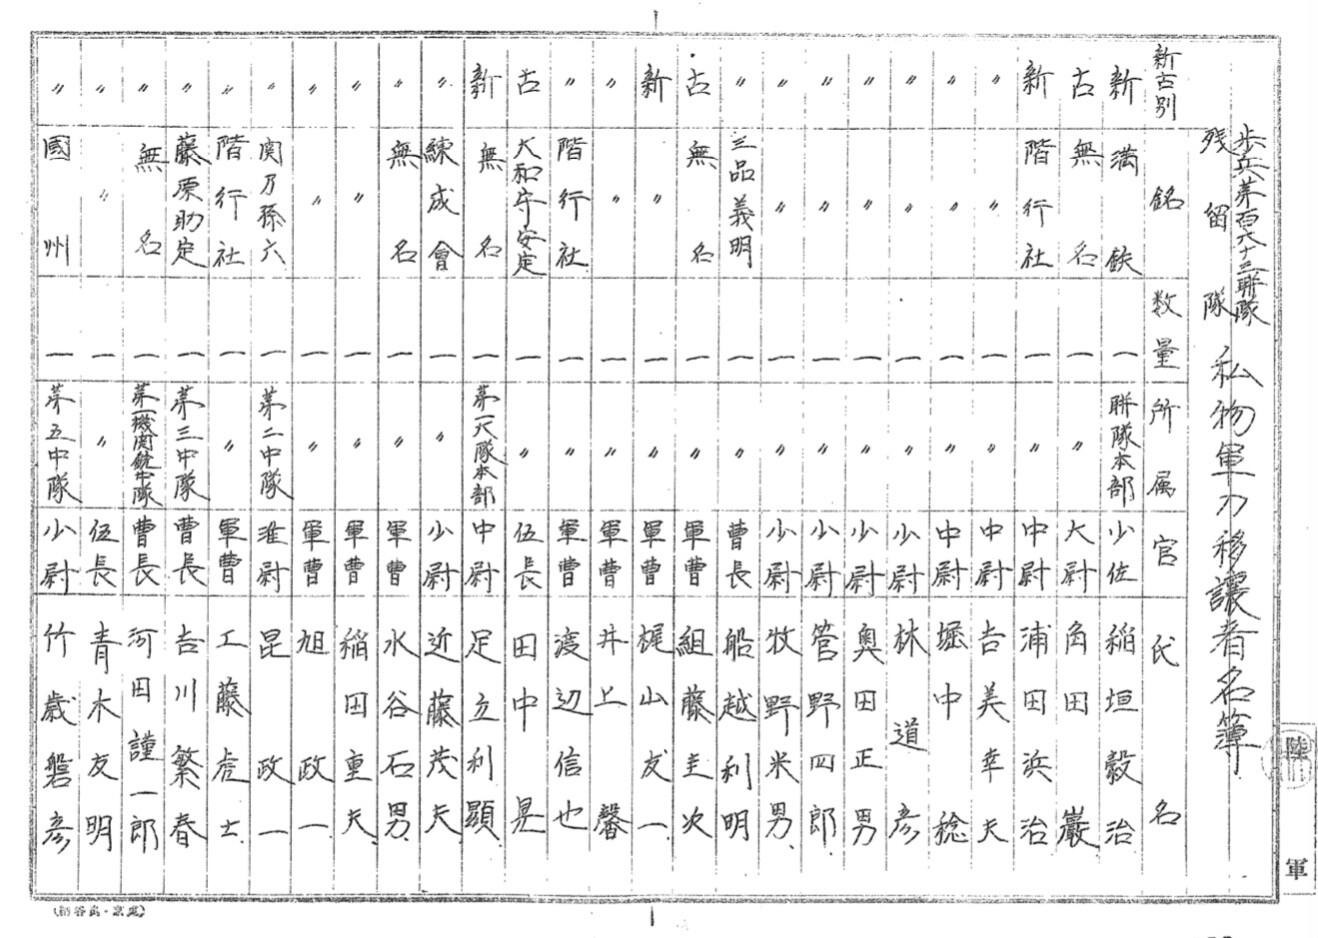 歩兵第百六十三聯隊
残留隊 私物軍刀移譲者名簿
新古別 銘 数量 所属 官 氏名
新 満鉄 一 聯隊本部 少佐 稲垣毅治
古 無名 一 〃 大尉 角田巌
新 階行社 一 〃 中尉 浦田浜治
〃 〃 一 〃 中尉 吉美幸夫
〃 〃 一 〃 中尉 堀中稔
〃 〃 一 〃 少尉 林道彦
〃 〃 一 〃 少尉 奥田正男
〃 〃 一 〃 少尉 菅野四郎
〃 〃 一 〃 少尉 牧野米男
〃 三品義明 一 〃 曹長 船越利明
古 無名 一 〃 軍曹 組藤圭次
新 〃 一 〃 軍曹 梶山友一
〃 〃 一 〃 軍曹 井上馨
〃 階行社 一 〃 軍曹 渡辺信也
古 大和守安定 一 〃 伍長 田中晃
新 無名 一 第一大隊本部 中尉 足立利顕
〃 練成會 一 〃 少尉 近藤茂夫
〃 無名 一 〃 軍曹 水谷石男
〃 〃 一 〃 軍曹 稲田重夫
〃 〃 一 〃 軍曹 旭政一
〃 関乃孫六 一 第二中隊 准尉 昆政一
〃 階行社 一 〃 軍曹 工藤虎士
〃 藤原助定 一 第三中隊 曹長 吉川繁春
〃 無名 一 第一機関銃中隊 曹長 河田謹一郎
〃 〃 一 〃 伍長 青木友明
〃 國州 一 第五中隊 少尉 竹歳磐彦
陸
軍